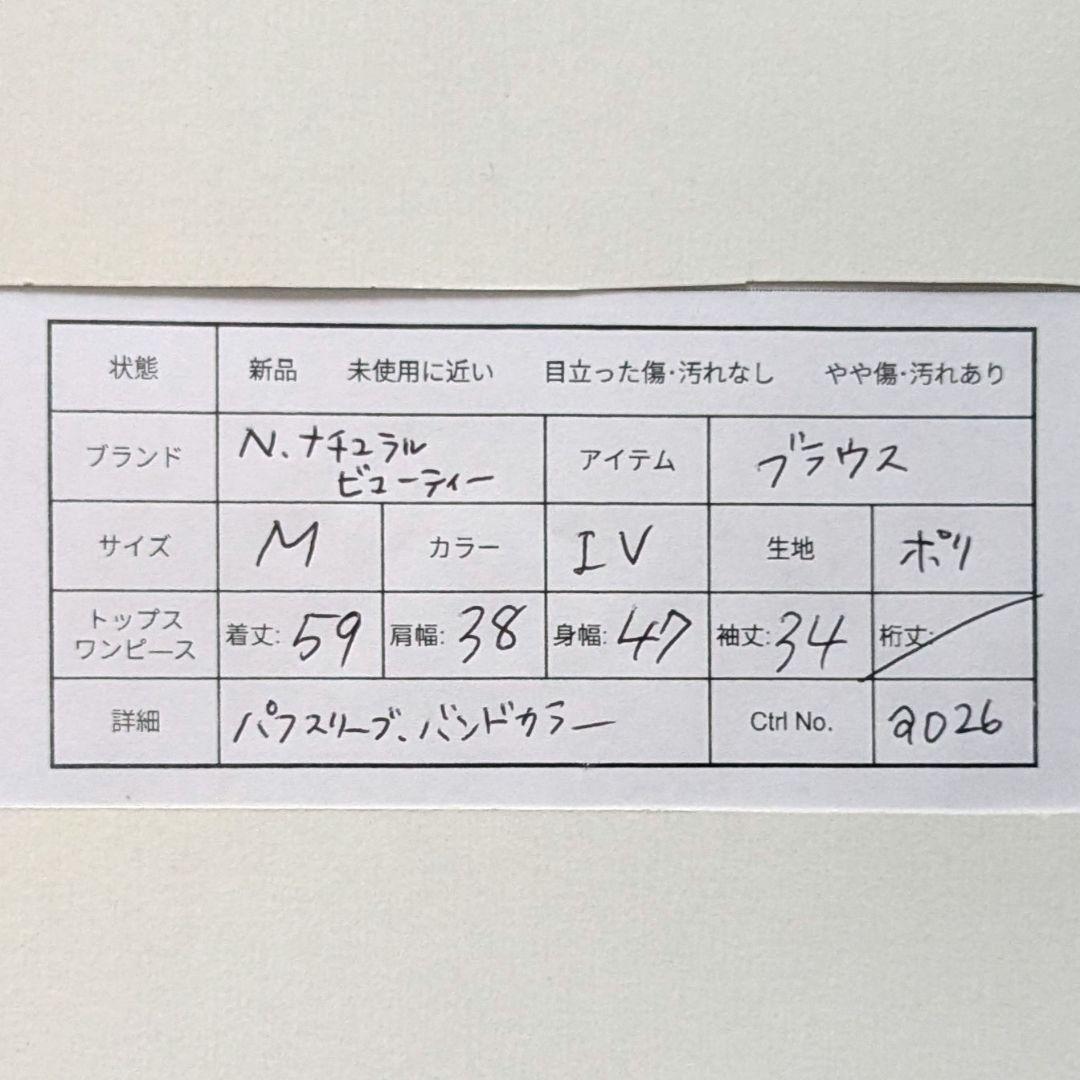 状態 新品 未使用に近い 目立った傷・汚れなし やや傷・汚れあり
ブランド N.ナチュラル
ビューティー アイテム ブラウス
サイズ M カラー IV 生地 ポリ
トップス
ワンピース 着丈:59 肩幅:38 身幅:47 袖丈:34 裄丈:
詳細 パフスリーブ、バンドカラー Ctrl No. a026